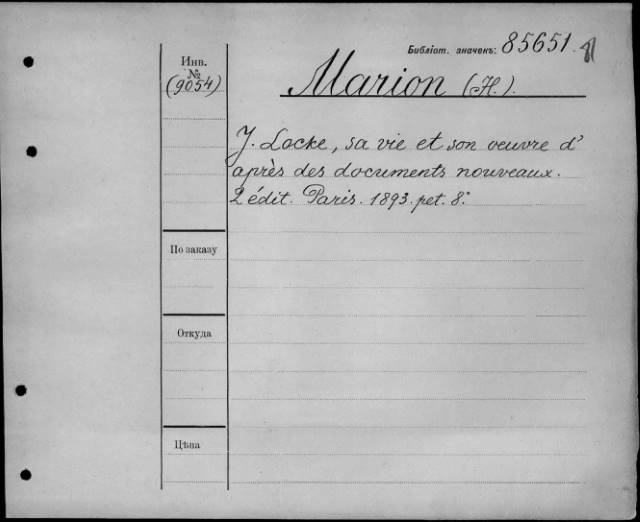 Библіот. значекъ: 85651
Инв.
№
(9054)
Marion (H.).
J. Locke, sa vie et son oeuvre d'
après des documents nouveaux.
2 édit. Paris. 1893. pet. 8°.
По заказу
Откуда
Цѣна